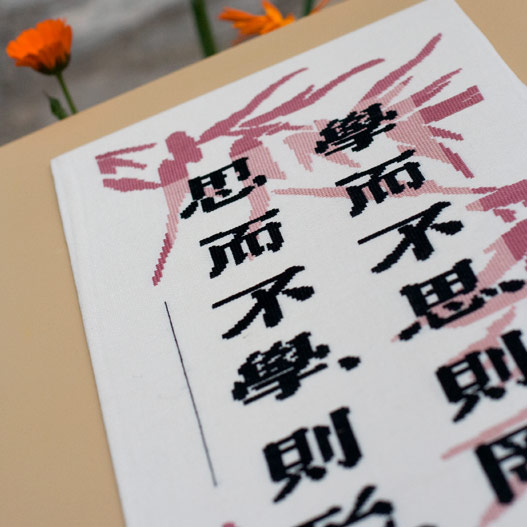 學而不思則罔
思而不學、則殆